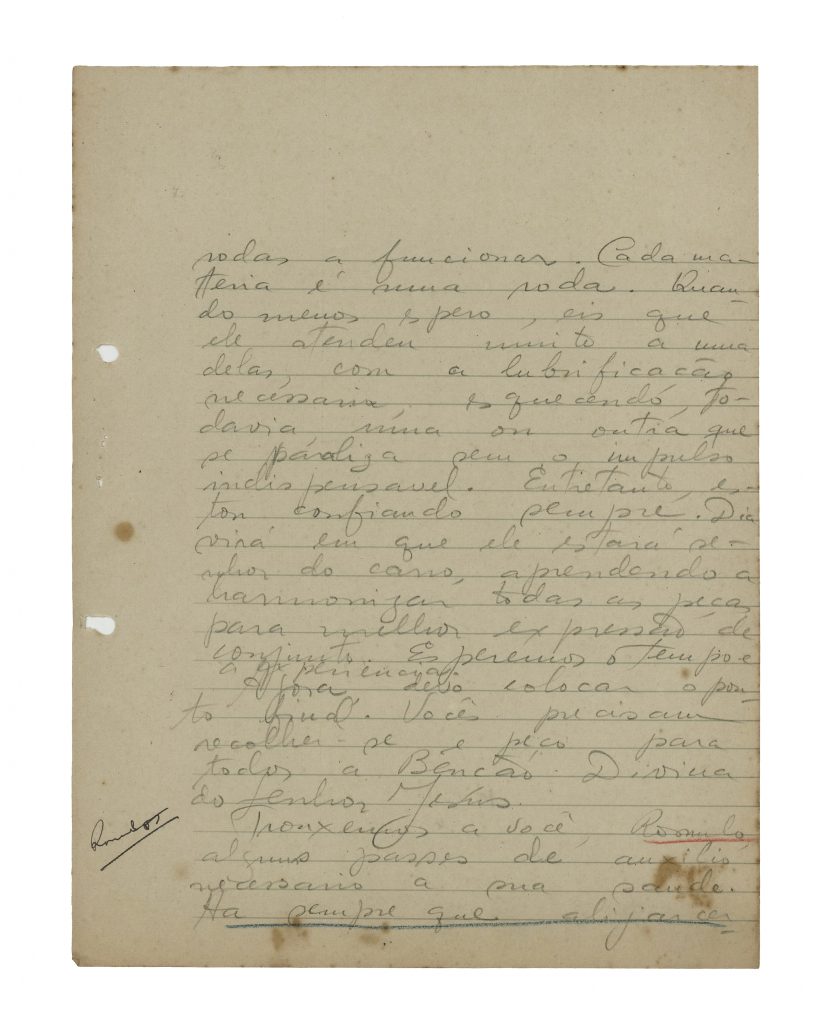 rodas a funcionar. Cada ma-
teria é uma roda. Quan-
do menos espero, eis que
ele atendeu muito a uma
delas, com a lubrificacão
necessaria esquecendo, to-
davia uma ou outra que
se paraliza sem o impulso
indispensavel. Entretanto, es-
tou confiando sempre. Dia
virá em que ele estará se-
nhor do carro, aprendendo a
harmonizar todas as peças
para melhor expressão de
conjunto. Esperemos o tempo e
a experiencia.
Agora devo colocar o pon-
to final. Vocês precisam
recolher-se e peço para
todos a Bencão Divina
do Senhor Jesus.
Trouxemos a você, Romulo
alguns passes de auxilio
necessario a sua saude.
Ha sempre que alijar